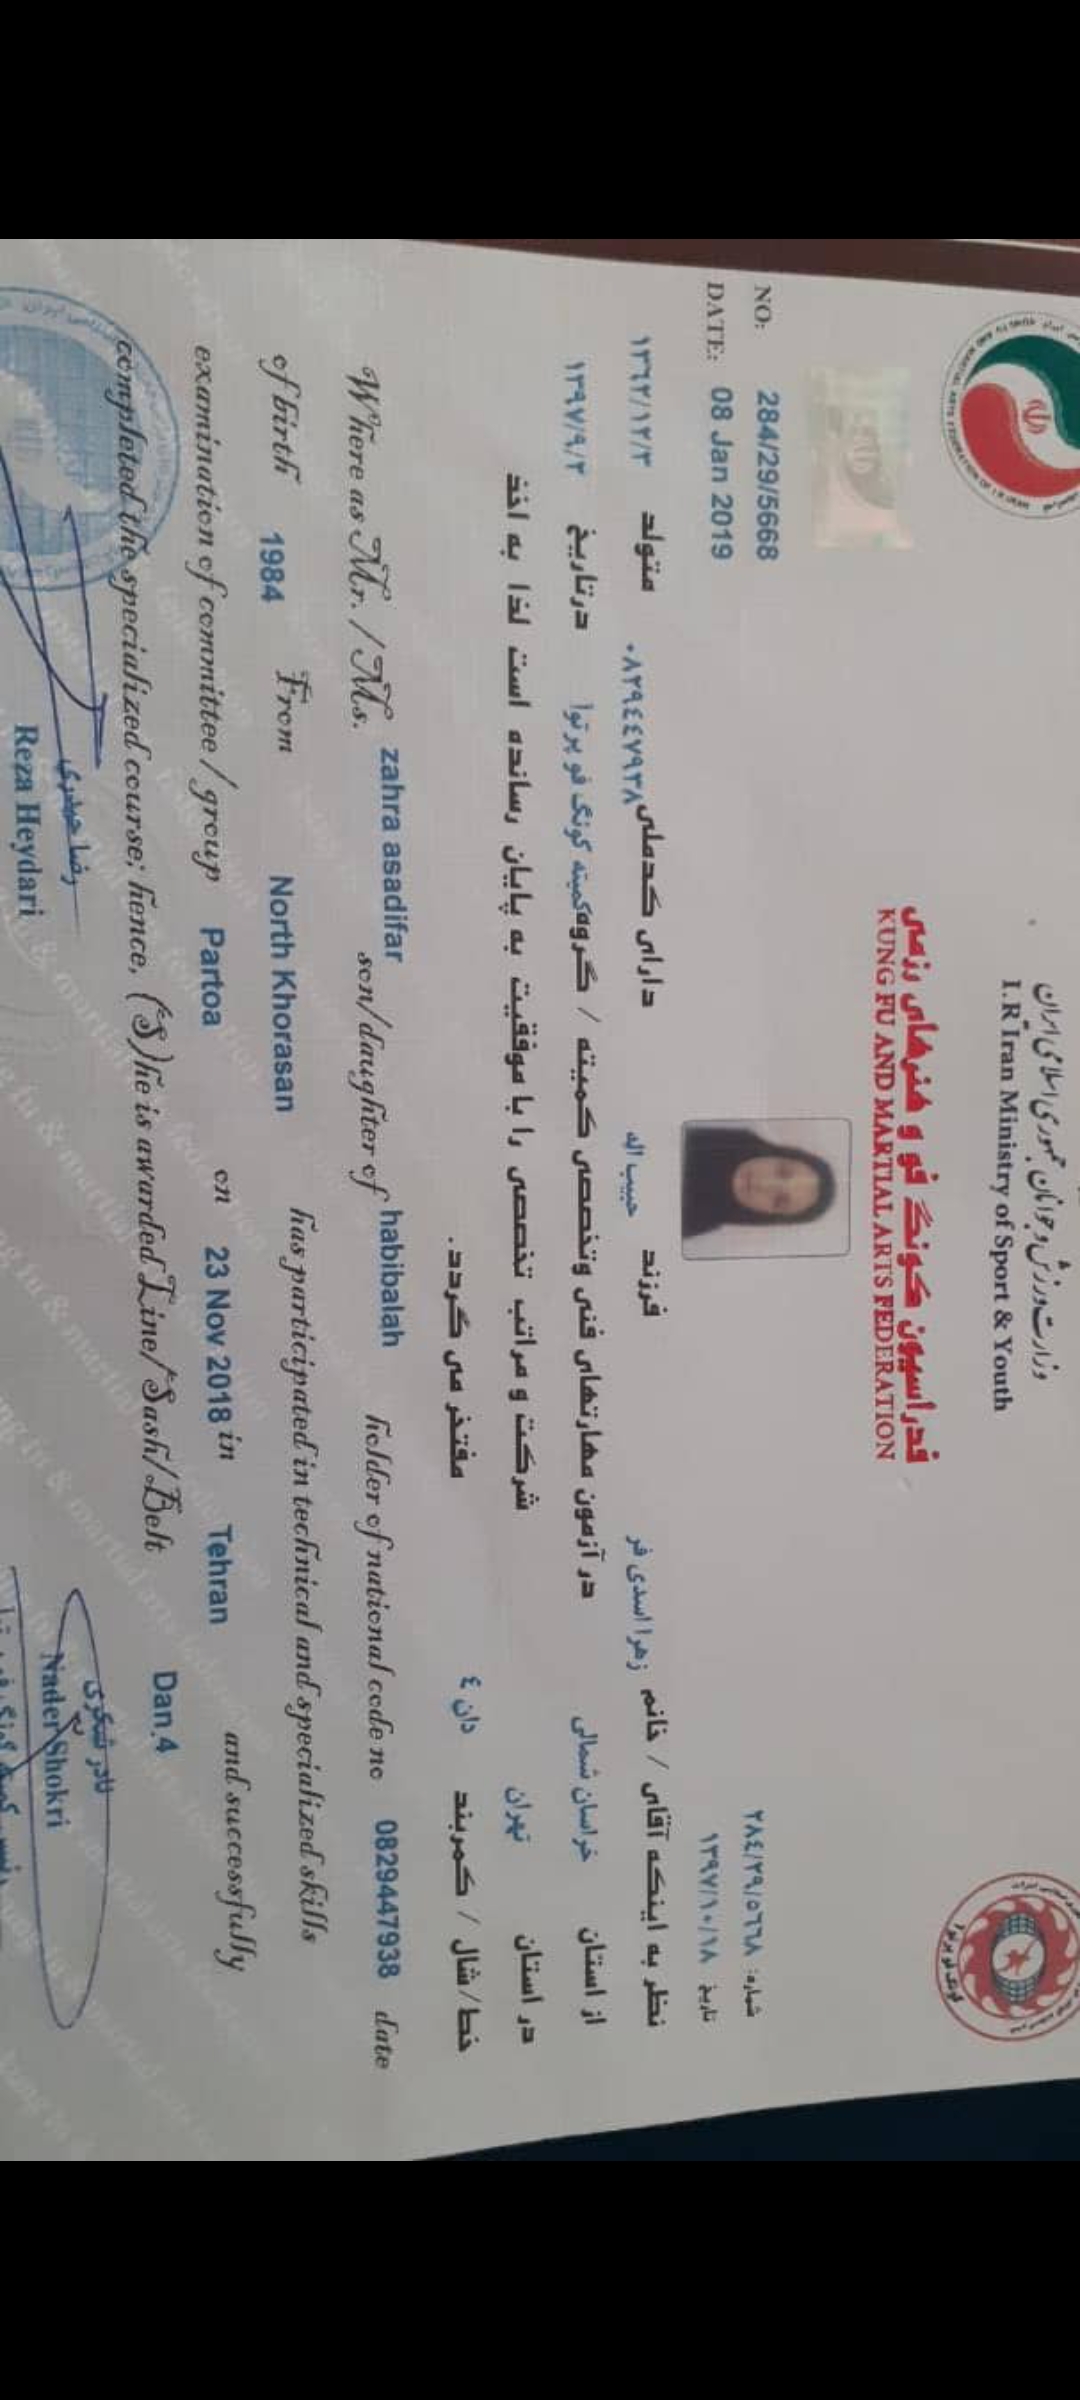 وزارت ورزش و جوانان جمهوری اسلامی ایران
I.R Iran Ministry of Sport & Youth
فدراسیون کونگ فو و هنرهای رزمی
KUNG FU AND MARTIAL ARTS FEDERATION
کونگ فو پرتوا
NO: 284/29/5668
DATE: 08 Jan 2019
شماره: ۲۸٤/۲۹/٥٦٦۸
تاریخ ۱۳۹۷/۱۰/۱۸
نظر به اینکه آقای / خانم زهرا اسدی فر فرزند حبیب اله دارای کدملی ۰۸۲۹٤٤۷۹۳۸ متولد ۱۳٦۲/۱۲/۳
از استان خراسان شمالی در آزمون مهارتهای فنی وتخصصی کمیته / گروه کمیته کونگ فو پرتوا درتاریخ ۱۳۹۷/۹/۲
در استان تهران شرکت و مراتب تخصصی را با موفقیت به پایان رسانده است لذا به اخذ
خط/شال / کمربند دان ٤ مفتخر می گردد.
Where as Mr. / Ms. zahra asadifar son/daughter of habibalah holder of national code no 0829447938 date
of birth 1984 From North Khorasan has participated in technical and specialized skills
examination of committee / group Partoa on 23 Nov 2018 in Tehran and successfully
completed the specialized course; hence, (S)he is awarded Line/Sash/Belt Dan.4
رضا حیدری
Reza Heydari
نادر شکری
Nader Shokri